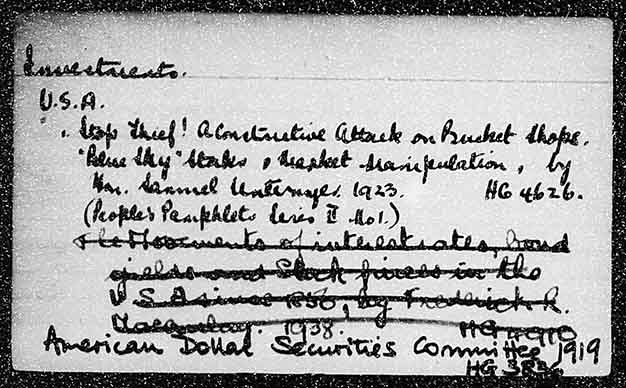 Investments.
U.S.A.
Stop Thief! A Constructive Attack on Bucket Shops.
"Blue Sky" Stocks & Market Manipulation, by
Hon. Samuel Untermyer. 1923. HG 4626.
(People's Pamphlets Series II No 1.)
The Movements of interest rates, bond
yields and Stock prices in the
U S A since 1856, by Frederick R.
Macaulay. 1938. HG
American Dollar Securities Committee, 1919
HG